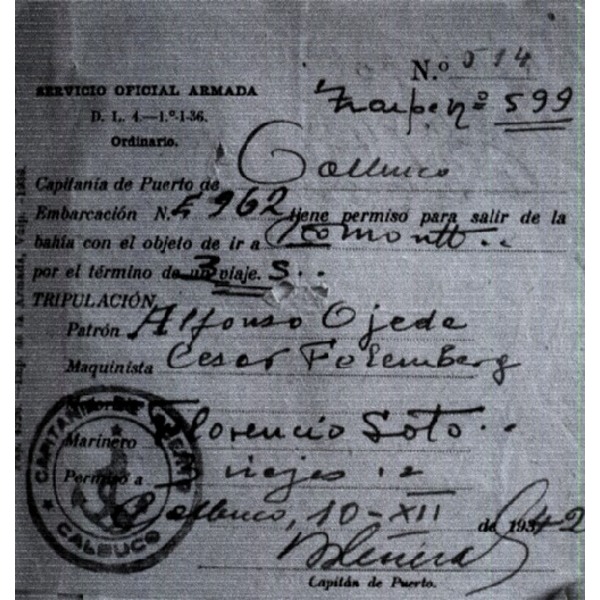 N.º 514
SERVICIO OFICIAL ARMADA
nº 599
D. L. 4.—1.º-1-36.
Ordinario.
Capitanía de Puerto de Calbuco
Embarcación N.º 962 tiene permiso para salir de la
bahía con el objeto de ir a Pto Montt..
por el término de un 3 viaje. s..
TRIPULACIÓN
Patrón Alfonso Ojeda
Maquinista Cesar
Marinero Florencio Soto..
Permiso a viajes
Calbuco, 10-XII de 1942
Capitán de Puerto.
CAPITANIA DE PUERTO
CALBUCO